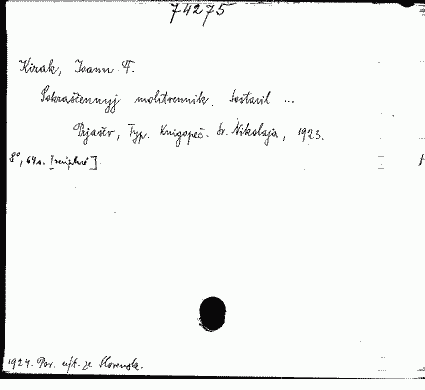 74275
Kizak, Ioann F.
Sokraščennyj molitvennik. Sostavil ...
Prjašev, Typ. Knigopeč. Sv. Nikolaja, 1923.
8°, 64 s. [neúplné]
1924. Pov. výt. ze Slovenska.